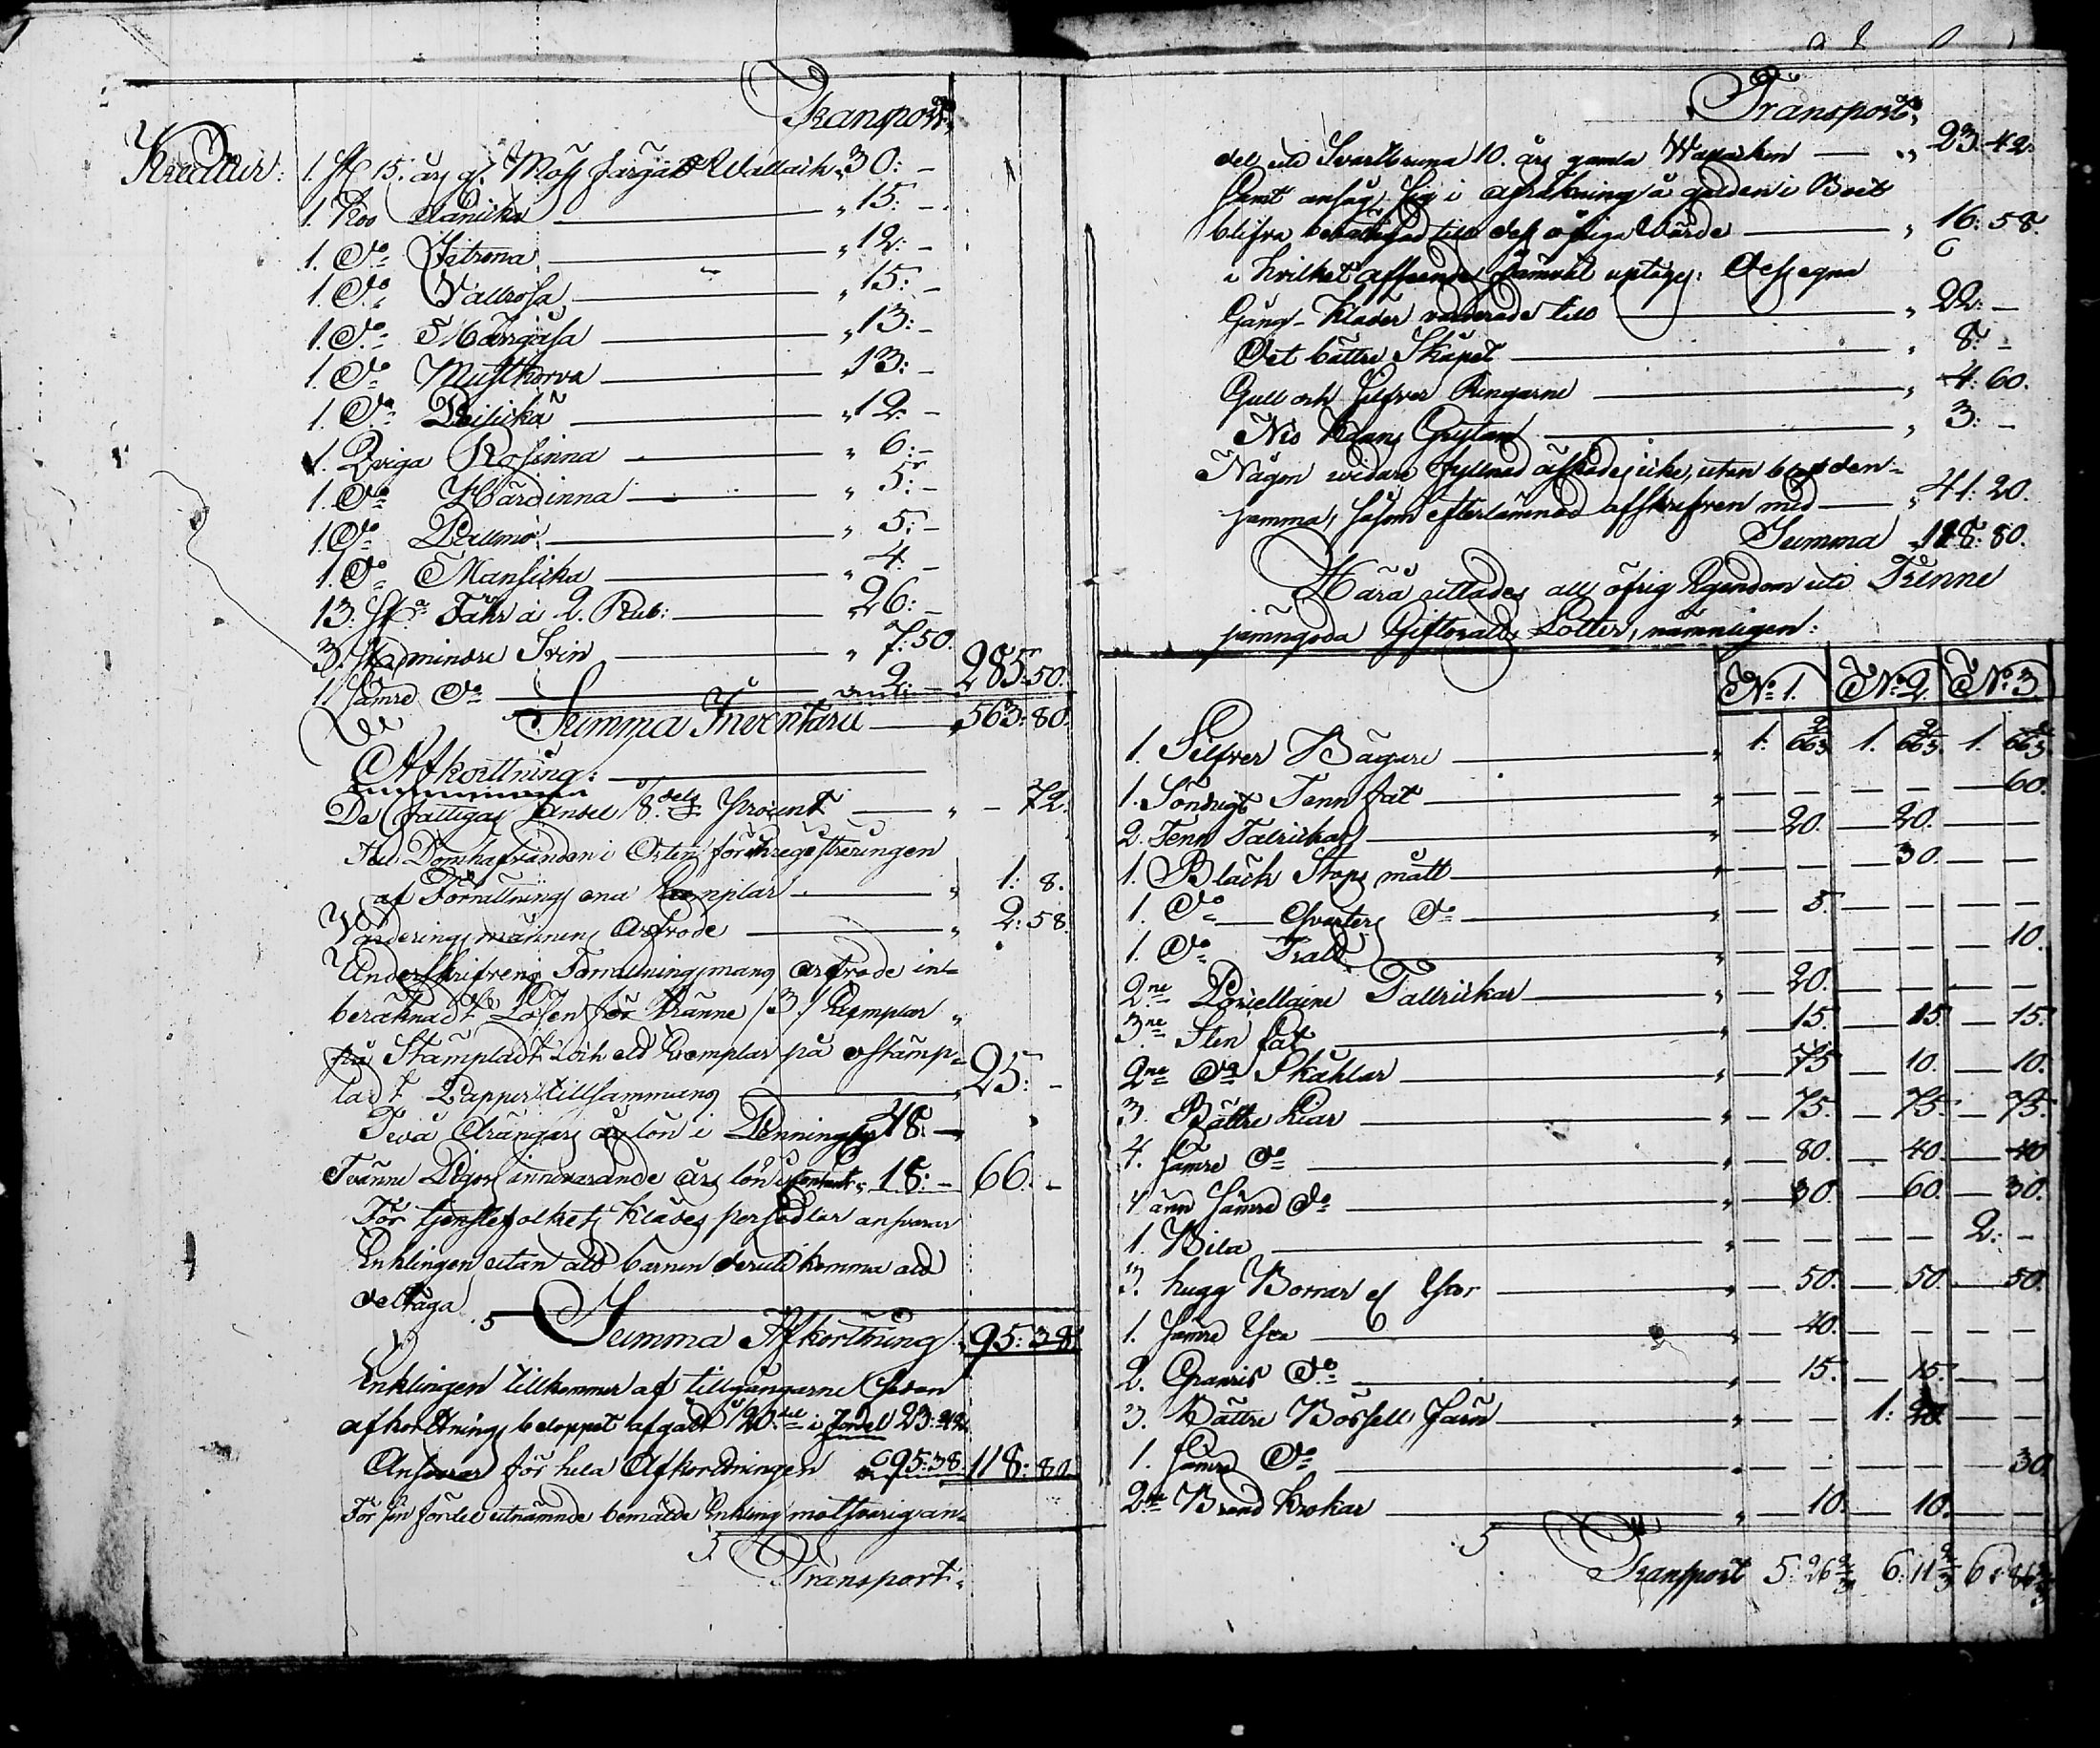 Transport:
Kreatur: 1. st. 15. års g. Moss färgat Wallach „ 30: –
1. Koo „ 15: –
1. Do „ 12: –
1. Do Vallrosa „ 15: –
1. Do Mangåsa „ 13: –
1. Do Mustkorva „ 13: –
1. Do „ 12: –
1. Qviga Rosinna „ 6: –
1. Do Hårdinna „ 5: –
1. Do Pallmo „ 5: –
1. Do Mansicka „ 4: –
13. st. Fåhr a 2. Rub: 26: –
3. st. mindre Svin „ 7: 50.
1. sämre Do 2: – 285: 50.
Summa Inventarii 563: 80.
Afkorttning:
De fattigas andel 1/8 dels Procent „ – 72.
Till Domhafvanden i Orten för inregistreringen
af Förrättnings ena Exemplar „ 1: 8.
Värderings männens Arfvode „ 2: 58.
Underskrifvens Förrättningsmans arfvode in-
beräknadt Lösen för tvänne /3/ Exemplar „
på Stämpladt och ett Exemplar på ostämp-
ladt Papper tillsammans „ 25: –
Två drängars års lön i Penningar 48: –
Tvänne Pigors innevarande års lön i contant „ 18: – 66: –
För tjenstefolkets Klädes persedlar ansvarar
Enklingen utan att barnen deruti komma att
deltaga
Summa Afkorttning 95: 38.
Enklingen tillkommer af tillgångarne sedan
afkorttnings beloppet afgått 1/20 del i fördel 23: 42.
Ansvarar för hela Afkorttningen 95: 38. 118: 80.
För sin fördel utnämnde bemälde Enkling motsvarig an-
Transport:
Transport:
del uti Svartbruna 10. års gamla Wallacken „ 23: 42.
samt ansåg sig i afräkning å gälden i Boet
blifva berättigad till dess öfriga Värde „ 16: 58.
i hvilket afseende jämväl uptoges: Dess egna
Gång-Kläder värderade till „ 22: –
Det bättre Skåpet „ 8: –
Gull och Silfver Ringarne „ 4: 60.
Grytan „ 3: –
Någon vidare fyllnad äskades icke, utan blef den-
samma, såsom efterlämnad afskrefven med „ 41: 20.
Summa 118: 80.
Härå uttades all öfrig Egendom uti Trenne
jämngoda Giftoratts Lotter, nämnligen:
No 1. No 2. No 3.
1. Silfver Bägare „ 1: 66 2/3 1. 66 2/3 1. 66 2/3
1. Söndrigt Tenn fat „ – – – – – 60.
2. Tenn Talrickar „ – 20. – 20. – –
1. Bläck Stops mått „ – – – 30. – –
1. Do Qvarters Do „ – 5. – – – –
1. Do Tratt „ – – – – – 10.
2ne Porcellaine Tallrickar „ – 20. – – – –
3ne Sten fat „ – 15. – 15. – 15.
2ne Do Skåhlar „ – 75 – 10. – 10.
3. Bättre Liar „ – 75. – 75. – 75.
4. sämre Do „ – 80. – 40. – 40
4 änn sämre Do „ – 30. – 60. – 30.
1. Bila „ – – – – 2: –
3. hugg „ – 50. – 50. – 50.
1. sämre Yxa „ – 40. – – – –
2. Do „ – 15. – 15. – –
3. Bättre „ – – 1: – –
1. sämre Do „ – – – – – 30.
2ne Brand Krokar „ – 10. – 10. – –
Transport 5: 26 2/3 6: 11 2/3 6: 86 2/3